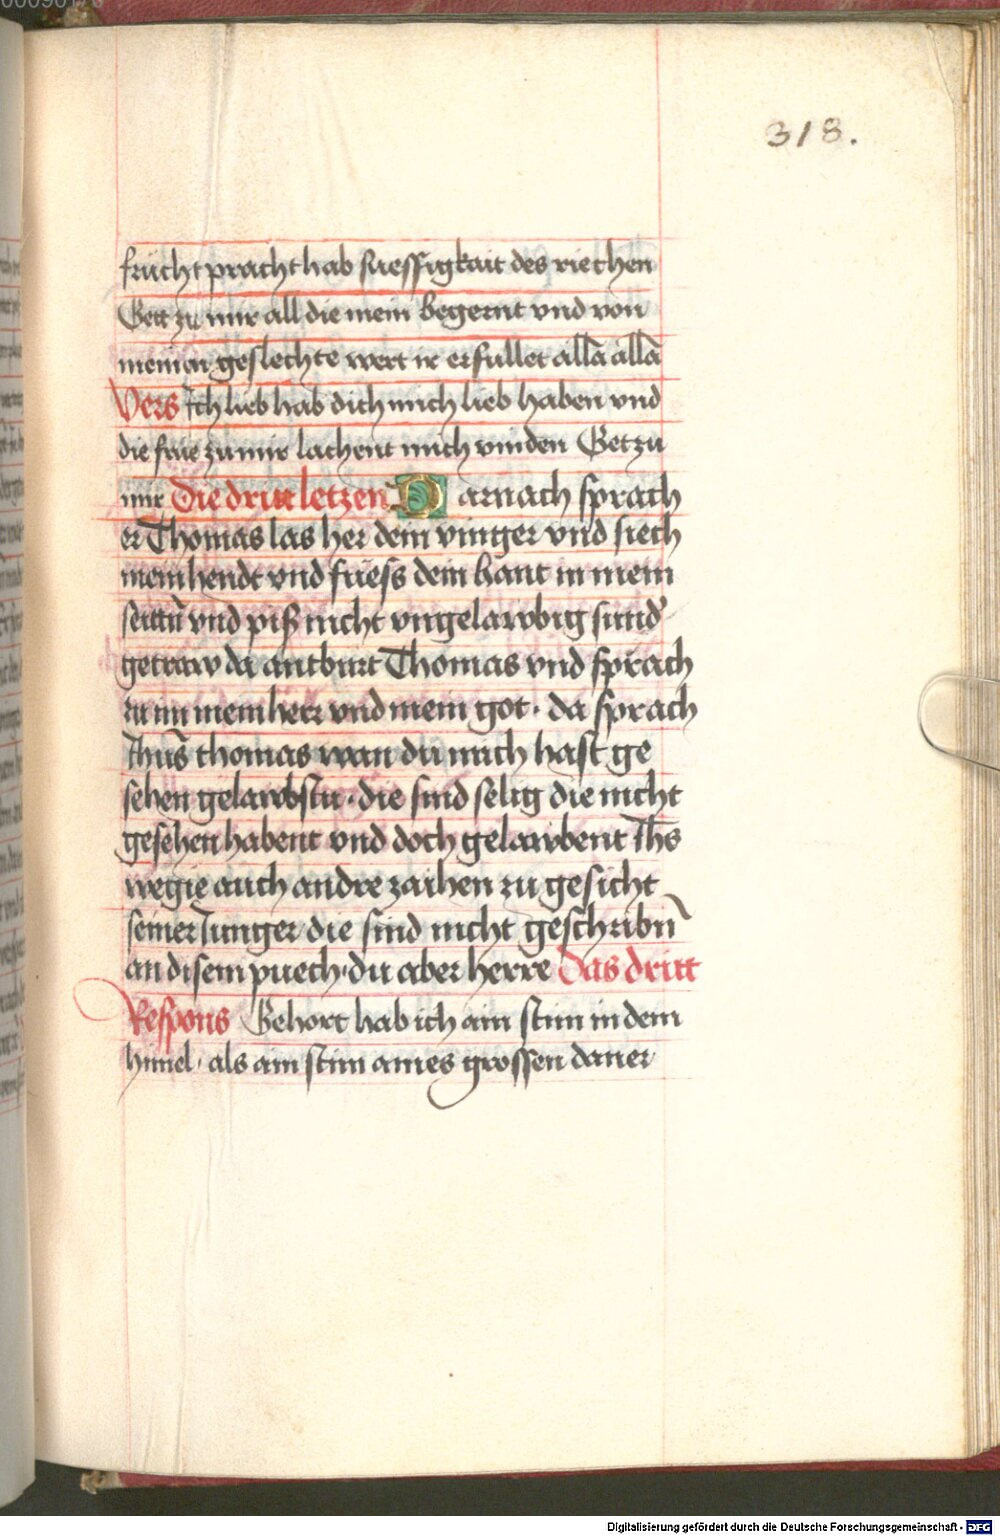 318.
frücht pracht hab suessigkait des riechen
Gett zu mir all die mein begernt vnd von
meinen geslechte wert ir erfullet alla alla
Vers Ich lieb hab dich mich lieb haben vnd
die frue zu mir lachent mich vinden Get zu
mir Die dritt letzen Darnach sprach
er Thomas las her dein vinger vnd siech
mein hendt vnd fuess dein hant in mein
seittn vnd piß nicht vngelawbig sund
getraw da antburt Thomas vnd sprach
zu im mein herr vnd mein got · da sprach
Ihus thomas wan du mich hast ge
sehen gelawbstu · die sind selig die nicht
gesehen habent vnd doch gelawbent Ihs
wegie auch andre zaihen zu gesicht
seiner Junger die sind nicht geschribn
an disem puech · du aber herre Das dritt
Respons Gehort hab ich ain stim in dem
himel · als ain stim aines grossen doner
Digitalisierung gefördert durch die Deutsche Forschungsgemeinschaft - DFG